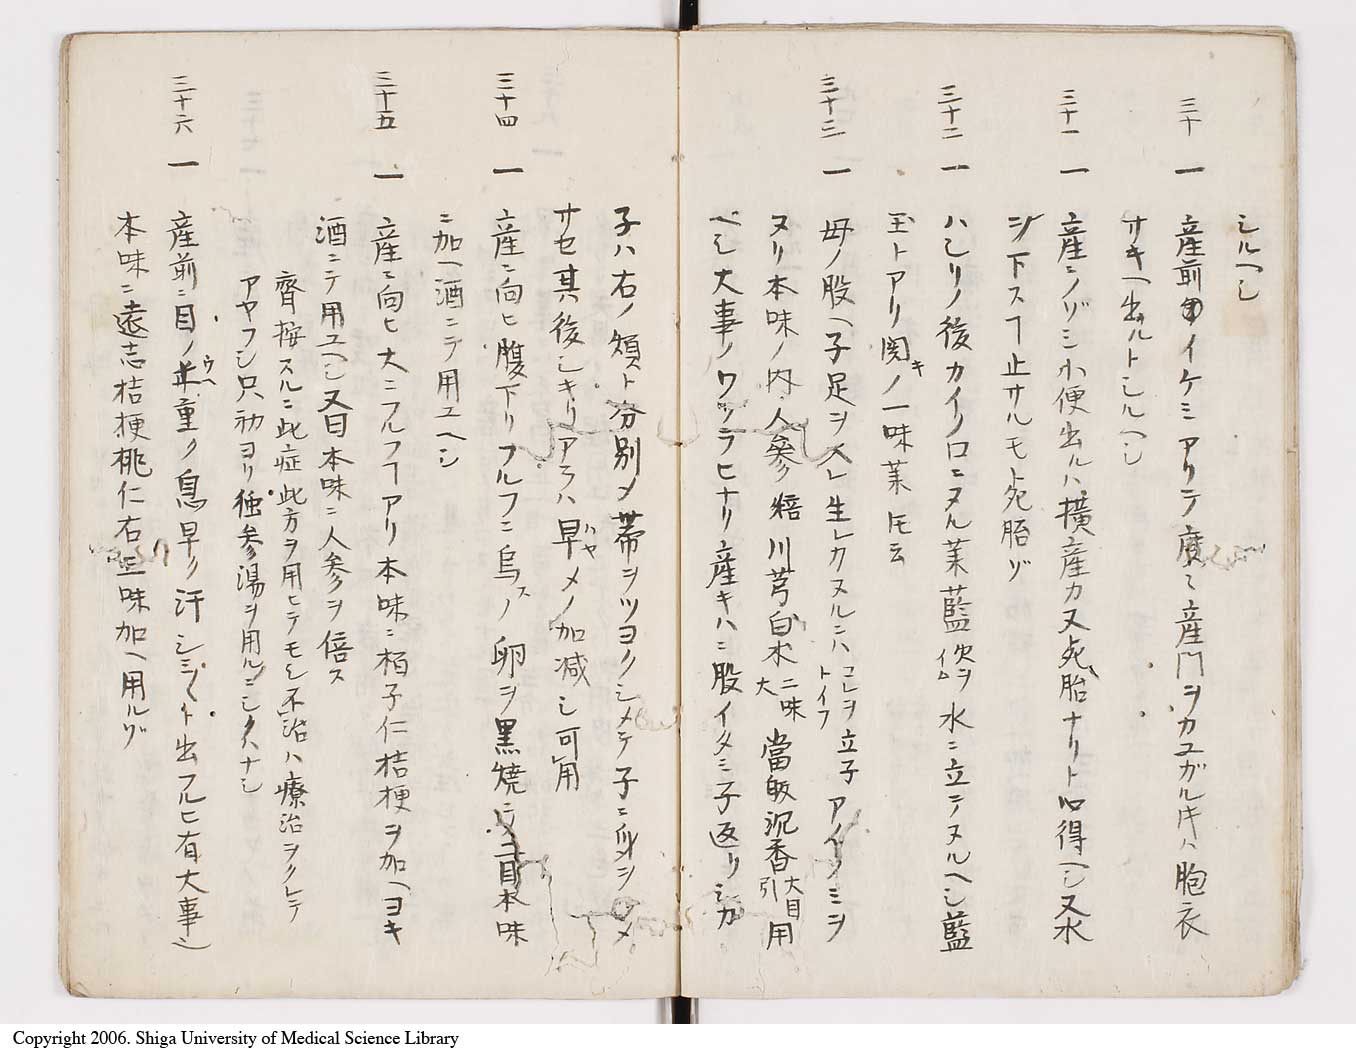 シルヘシ
三十 一 産前 イケミアリテ 産門ヲカユガル片ハ胞衣
サキヘ出ルトシルヘシ
三十一 一 産ニノゾミ小便出ルハ横産カ又死胎ナリト心得ヘシ又水
ジ下スヿ止サルモト死胎ゾ
三十二 一 ハシリノ後カイロニヌル茉藍 ヲ水ニ立テヌルヘシ藍
玉トアリ関キノ一味茉 云
三十三 一 母ノ股ヘ子足ヲ入レ生レカヌルニハコレヲ立子トイフアイノミヲ
ヌリ本味ノ内人參 倍川芎白朮二味大當皈沉香大目引用
ベシ大事ノワツラヒナリ産キハニ股イタミ子返リシカ
子ハ右ノ類ト分別メ帯ヲツヨクシメテ子ニ ヲシメ
サセ其後シキリアラハ早ハヤメノ加減シ可用
三十四 一 産ニ向ヒ腹下リフルフニ烏スノ卵ヲ黒焼ニ 本味
ニ加ヘ酒ニテ用ユヘシ
三十五 一 産ニ向ヒ大ニフルフヿアリ本味ニ栢子仁桔梗ヲ加ヘヨキ
酒ニテ用ユヘシ又曰本味ニ人参ヲ倍ス
齊按スルニ此症此方ヲ用ヒテモシ不治ハ療治ヲクレテ
アヤフシ只初ヨリ獨參湯ヲ用ルニシクハナシ
三十六 一 産前ニ目ノウヘ重ク息早ク汗シミジミト出フルヒ有大事也
本味ニ遠志桔梗桃仁右三味加ヘ用ルゾ